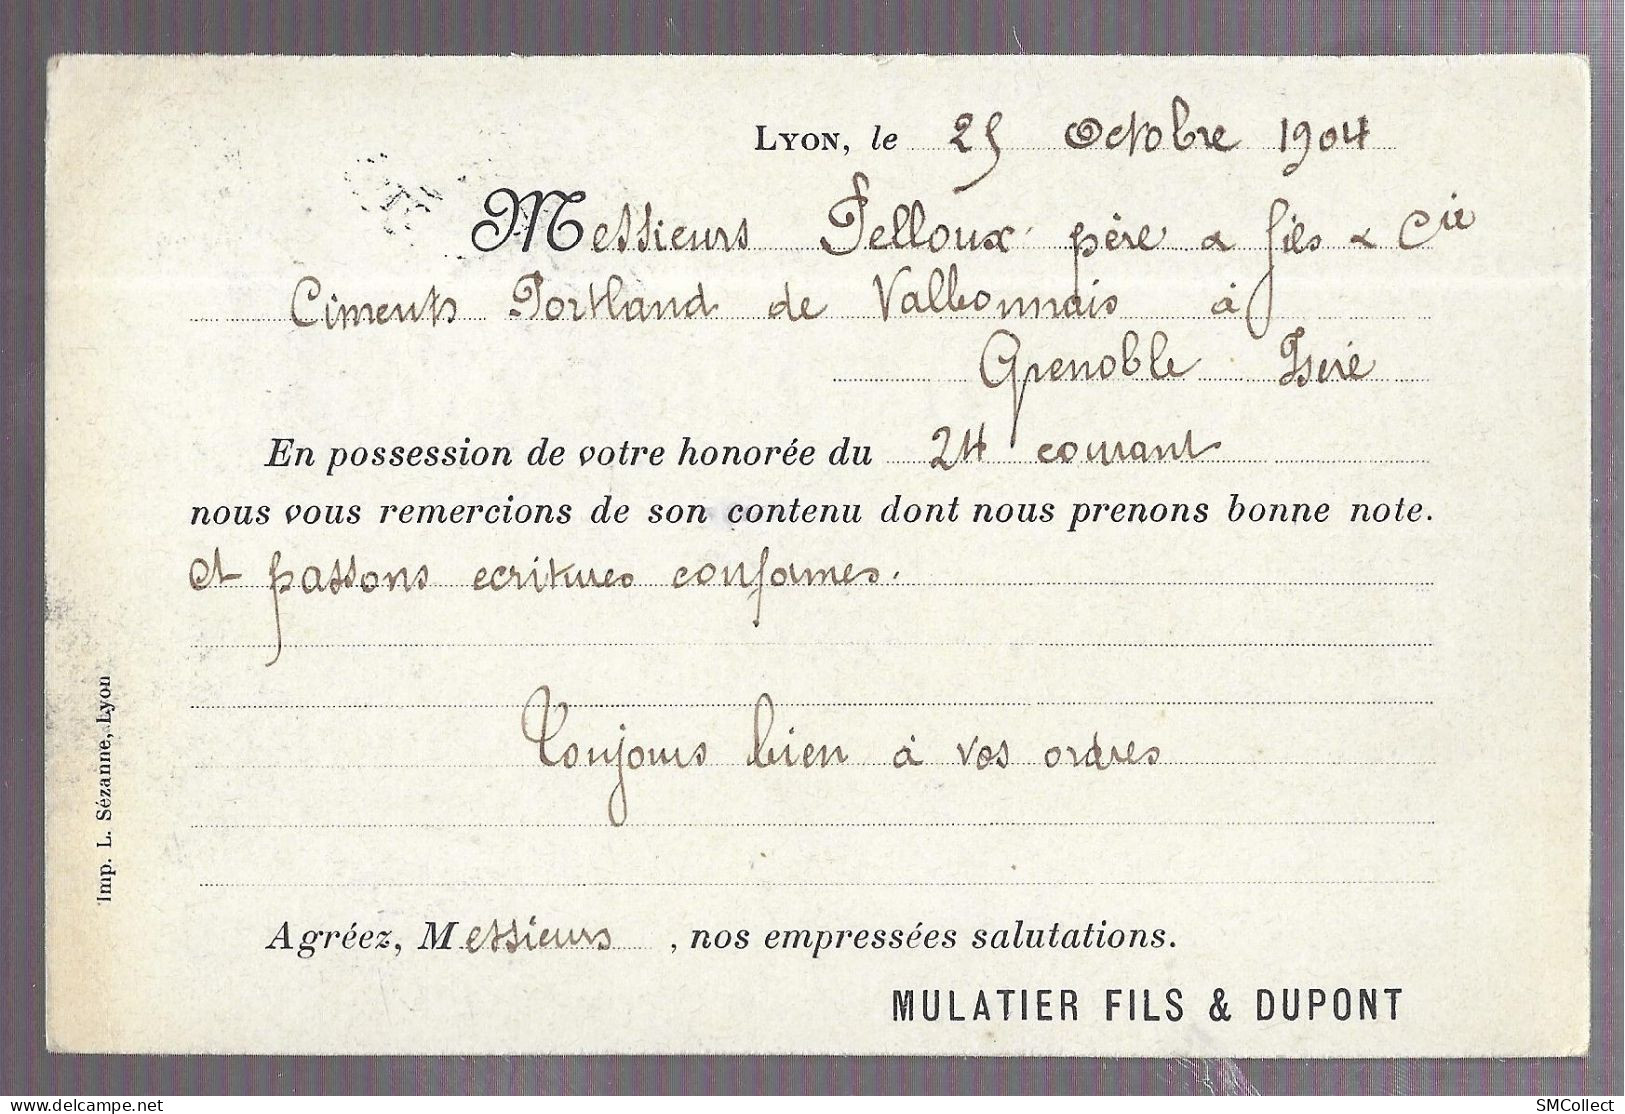 LYON, le 25 Octobre 1904
Messieurs Pelloux père & fils & Cie
Ciments Portland de Valbonnais à
Grenoble Isère
En possession de votre honorée du 24 courant
nous vous remercions de son contenu dont nous prenons bonne note.
et passons ecritures conformes.
Toujours bien à vos ordres
Agréez, Messieurs, nos empressées salutations.
MULATIER FILS & DUPONT
Imp. L. Sézanne, Lyon
delcampe.net
SMCollect